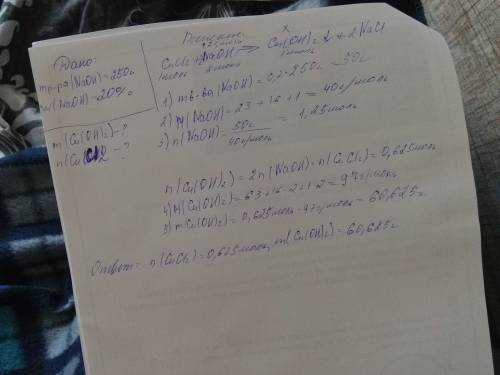 Дано:
mр-ра(NaOH)=250г
w(NaOH)=20%
m(Cu(OH)2)-?
n(CuCl2-?
Решение:
1,25моль x
CuCl2+2NaOH=>Cu(OH)2↓+2NaCl
1моль 2моль 1моль
1) mв-ва(NaOH)=0,2·250г=50г
2) M(NaOH)=23+16+1=40г/моль
3) n(NaOH)=50г/40г/моль=1,25моль
n(Cu(OH)2)=2n(NaOH)=n(CuCl2)=0,625моль
4) M(Cu(OH)2)=63+16·2+1·2=97г/моль
5) m(Cu(OH)2)=0,625моль·97г/моль=60,625г
Ответ: n(CuCl2)=0,625моль, m(Cu(OH)2)=60,625г